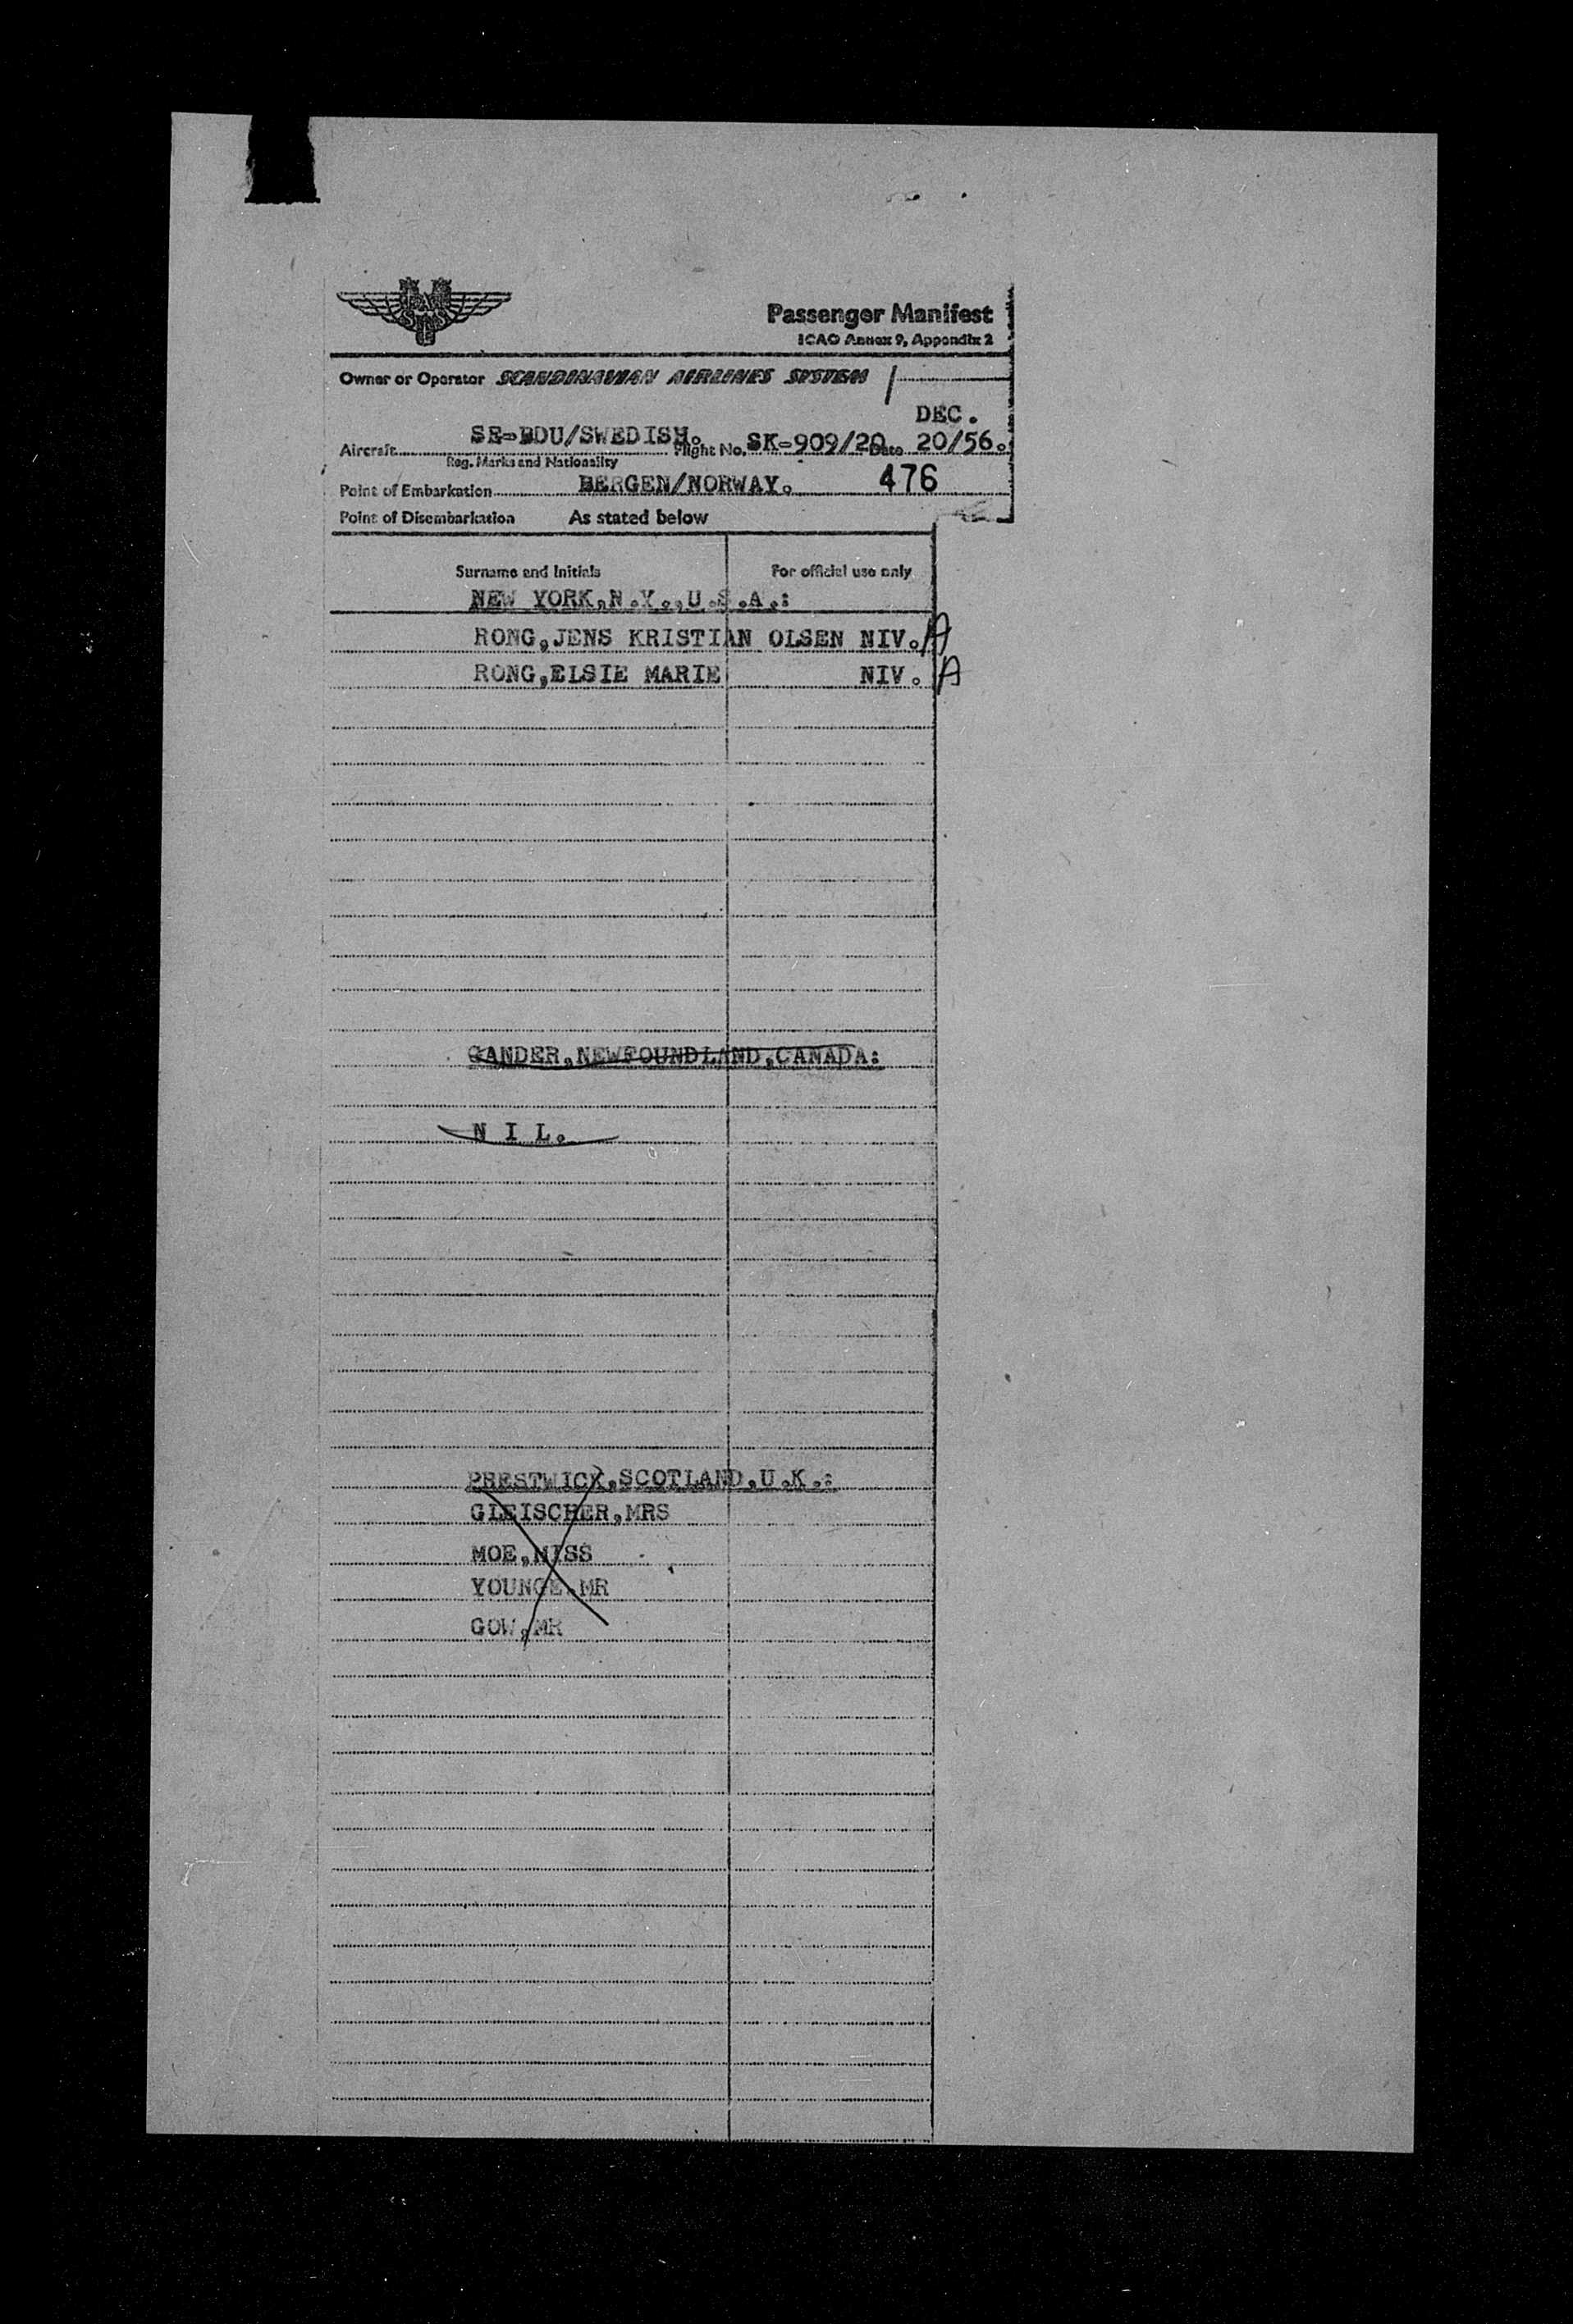 SAS
Passenger Manifest
ICAO Annex 9, Appendix 2
Owner or Operator SCANDINAVIAN AIRLINES SYSTEM
DEC.
Aircraft SE-BDU/SWEDISH. Flight No. SK-909/20 Date 20/56.
Reg. Marks and Nationality
Point of Embarkation BERGEN/NORWAY. 476
Point of Disembarkation As stated below
Surname and Initials For official use only
NEW YORK,N.Y.,U.S.A.:
RONG,JENS KRISTIAN OLSEN NIV. A
RONG,ELSIE MARIE NIV. A
GANDER,NEWFOUNDLAND,CANADA:
N I L.
PRESTWICK,SCOTLAND,U.K.:
GLEISCHER,MRS
MOE,MISS
YOUNGE,MR
GOW,MR